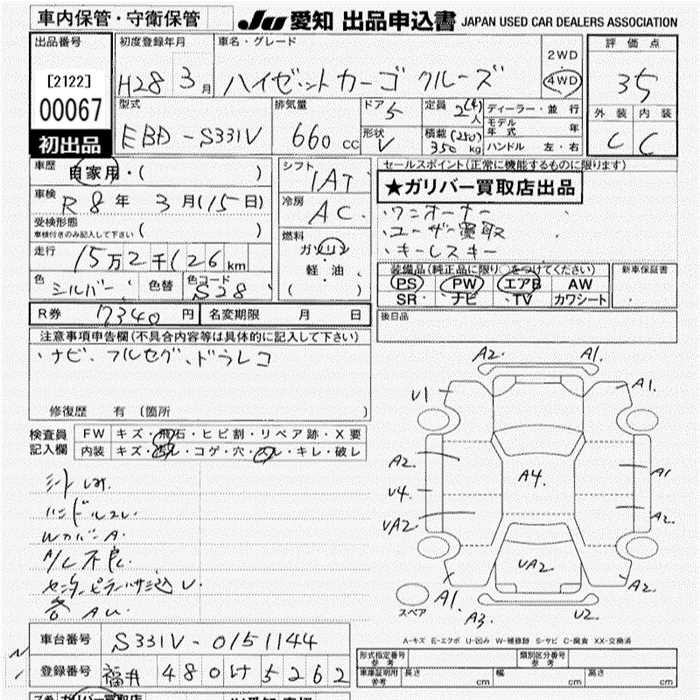 車内保管・守衛保管
JU 愛知 出品申込書 JAPAN USED CAR DEALERS ASSOCIATION
出品番号
[2122]
00067
初出品
初度登録年月
H28年 3月
車名・グレード
ハイゼットカーゴ クルーズ
2WD
4WD
評価点
3.5
外装 内装
C C
型式
EBD-S331V
排気量
660 cc
ドア 5
形状 V
定員 2(4)人
積載 (250) 350 kg
ディーラー・並行
モデル年式 年
ハンドル 左・右
車歴
自家用・( )
車検
R8年 3月(15日)
受検形態
車検付きのみ記入して下さい ( )
走行
15万2千126km
色 シルバー
色替
色コード S28
シフト
IAT
冷房
AC
燃料
ガソリン
軽・油
( )
セールスポイント(正常に機能するものに限ります)
★ガリバー買取店出品
・ワンオーナー
・ユーザー買取
・キーレスキー
装備品(純正品に限り○をつけてください)
PS PW エアB AW
SR ナビ TV カワシート
新車保証書
後日品
R券 7340円
名変期限 月 日
注意事項申告欄(不具合内容等は具体的に記入して下さい)
・ナビ・フルセグ・ドラレコ
修復歴 有 (箇所 )
検査員記入欄
FW キズ・飛石・ヒビ割・リペア跡・X要
内装 キズ・汚レ・コゲ・穴・スレ・キレ・破レ
シートしみ
ハンドルスレ
WカバーA
A/C不良
各AU
A2. A1.
U1 A1.
A2. A1
U4. A4.
UA2. A2.
UA2
A1. A3. U2.
スペア
A-キズ E-エクボ U-凹み W-補修跡 S-サビ C-腐食 XX-交換済
車台番号 S331V-0151144
登録番号 福井 480 け 5262
形式指定番号 参考
類別区分番号 参考
車庫証明用 参考 長さ cm 幅 cm 高さ cm
ガリバー買取店